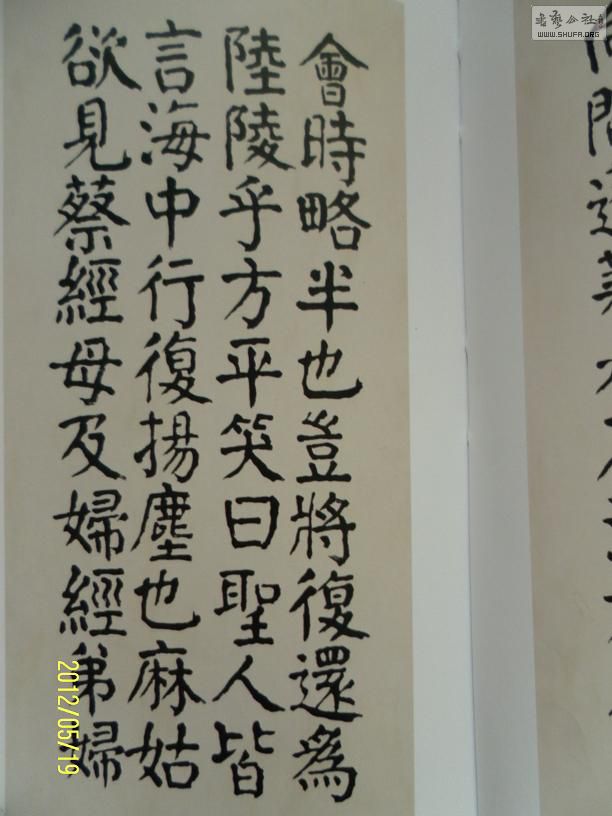 會時略半也豈將復還為
陸陵乎方平笑曰聖人皆
言海中行復揚塵也麻姑
欲見蔡經母及婦經弟婦
2012/05/19
書藝公社
WWW.SHUFA.ORG